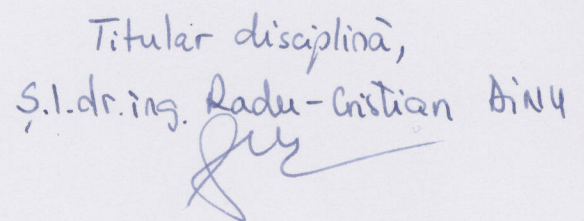 Titular disciplină,
Ș.l.dr.ing. Radu-Cristian DINU